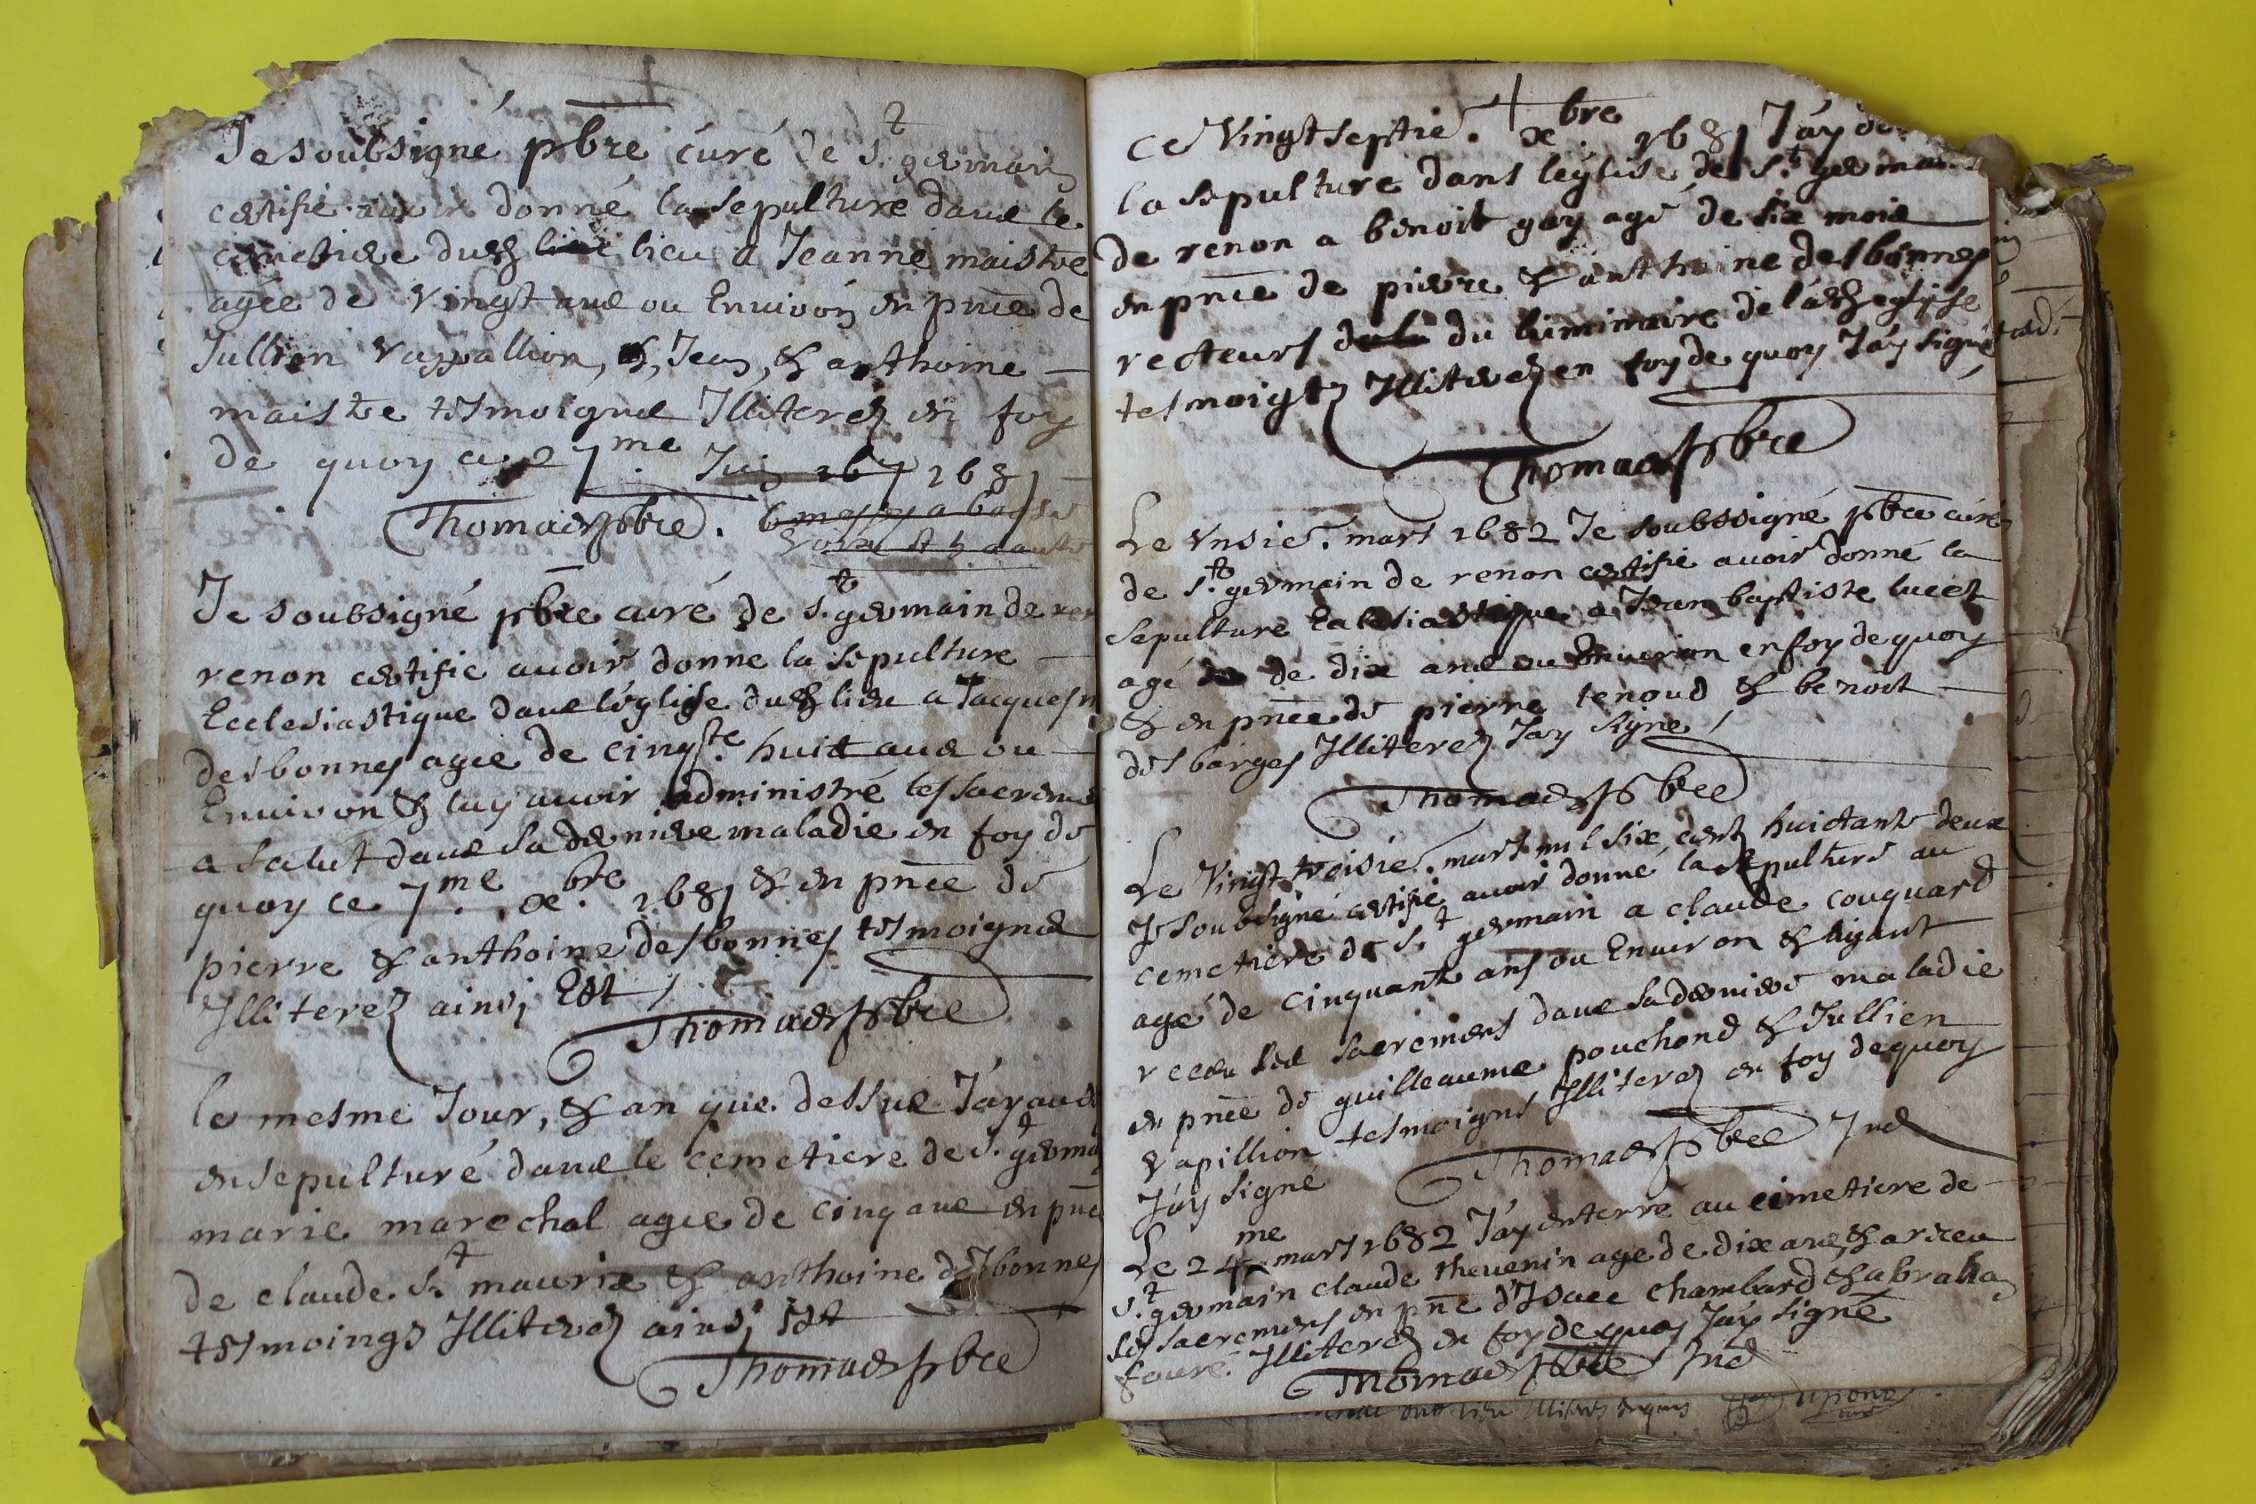 Je soubsigné pbre curé de St germain
certifie avoir donné la sepulture dans le
cimetiere dud lieu a Jeanne maistre
agée de vingt ans ou Environ en pnce de
Jullien vappallion, &, Jean, & anthoine
maistre tesmoigns Illiterez en foy
de quoy ce 27me Juin 167 1681
Thomas pbre.
Je soubsigné pbre curé de St germain de ren
renon certifie avoir donne la sepulture
Ecclesiastique dans léglise dud lieu a Jacques
desbonnes agée de cinqte huict ans ou
Environ & luy avoir administré les sacremens
a salut dans sa derniere maladie en foy de
quoy ce 7me xbre 1681 & en pnce de
pierre & anthoine desbonnes tesmoigns
Illiterez ainsi Est
Thomas pbre
le mesme Jour, & an que dessus Jáy
ensepulturé dans le cemetiere de St germain
marie marechal agée de cinq ans en pnce
de claude St mauris & anthoine desbonnes
tesmoings Illiterez ainsi Est
Thomas pbre
ce vingt septie. xbre 1681 Jáy
la sepulture dans léglise de St germain
de renon a benoit gay agé de six mois
en pnce de pierre & anthoine desbonnes
recteurs dela du luminaire de lad eglise
tesmoigtz Illiterez en foy de quoy Jáy signé
Thomas pbre
Le unsie. mars 1682 Je soubssigné pbre curé
de St germain de renon certifie avoir donné la
sepulture Eclesiastique a Jean baptiste lucet
agé de dix ans ou Environ en foy de quoy
& en pnce de pierre tenoud & benoit
desbarges Illiterez Jay signé
Thomas pbre
Le vingt troisie. mars mil six cent huictante deux
Je soubsigné certifie avoir donné la sepulture au
cemetiere de St germain a claude couquard
agé de cinquante ans ou Environ & ayant
receu les sacremens dans sa derniere maladie
en pnce de guilleaume pouchond & Jullien
vapillion tesmoigns Illiterez en foy de quoy
Jáy signé Thomas pbre
Le 24me mars 1682 Jáy enterré au cimetiere de
St germain claude thevenin agé de dix ans, & a receu
les sacremens en pnce d'Isaac chambard & abraham
faure Illiterez en foy de quoy Jáy signé
Thomas pbre